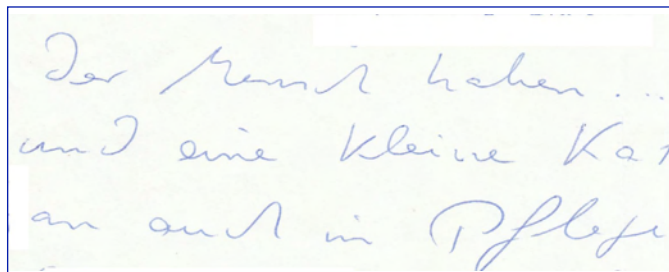 Der Mensch haben ...
und eine kleine Kat
an auch in Pflege